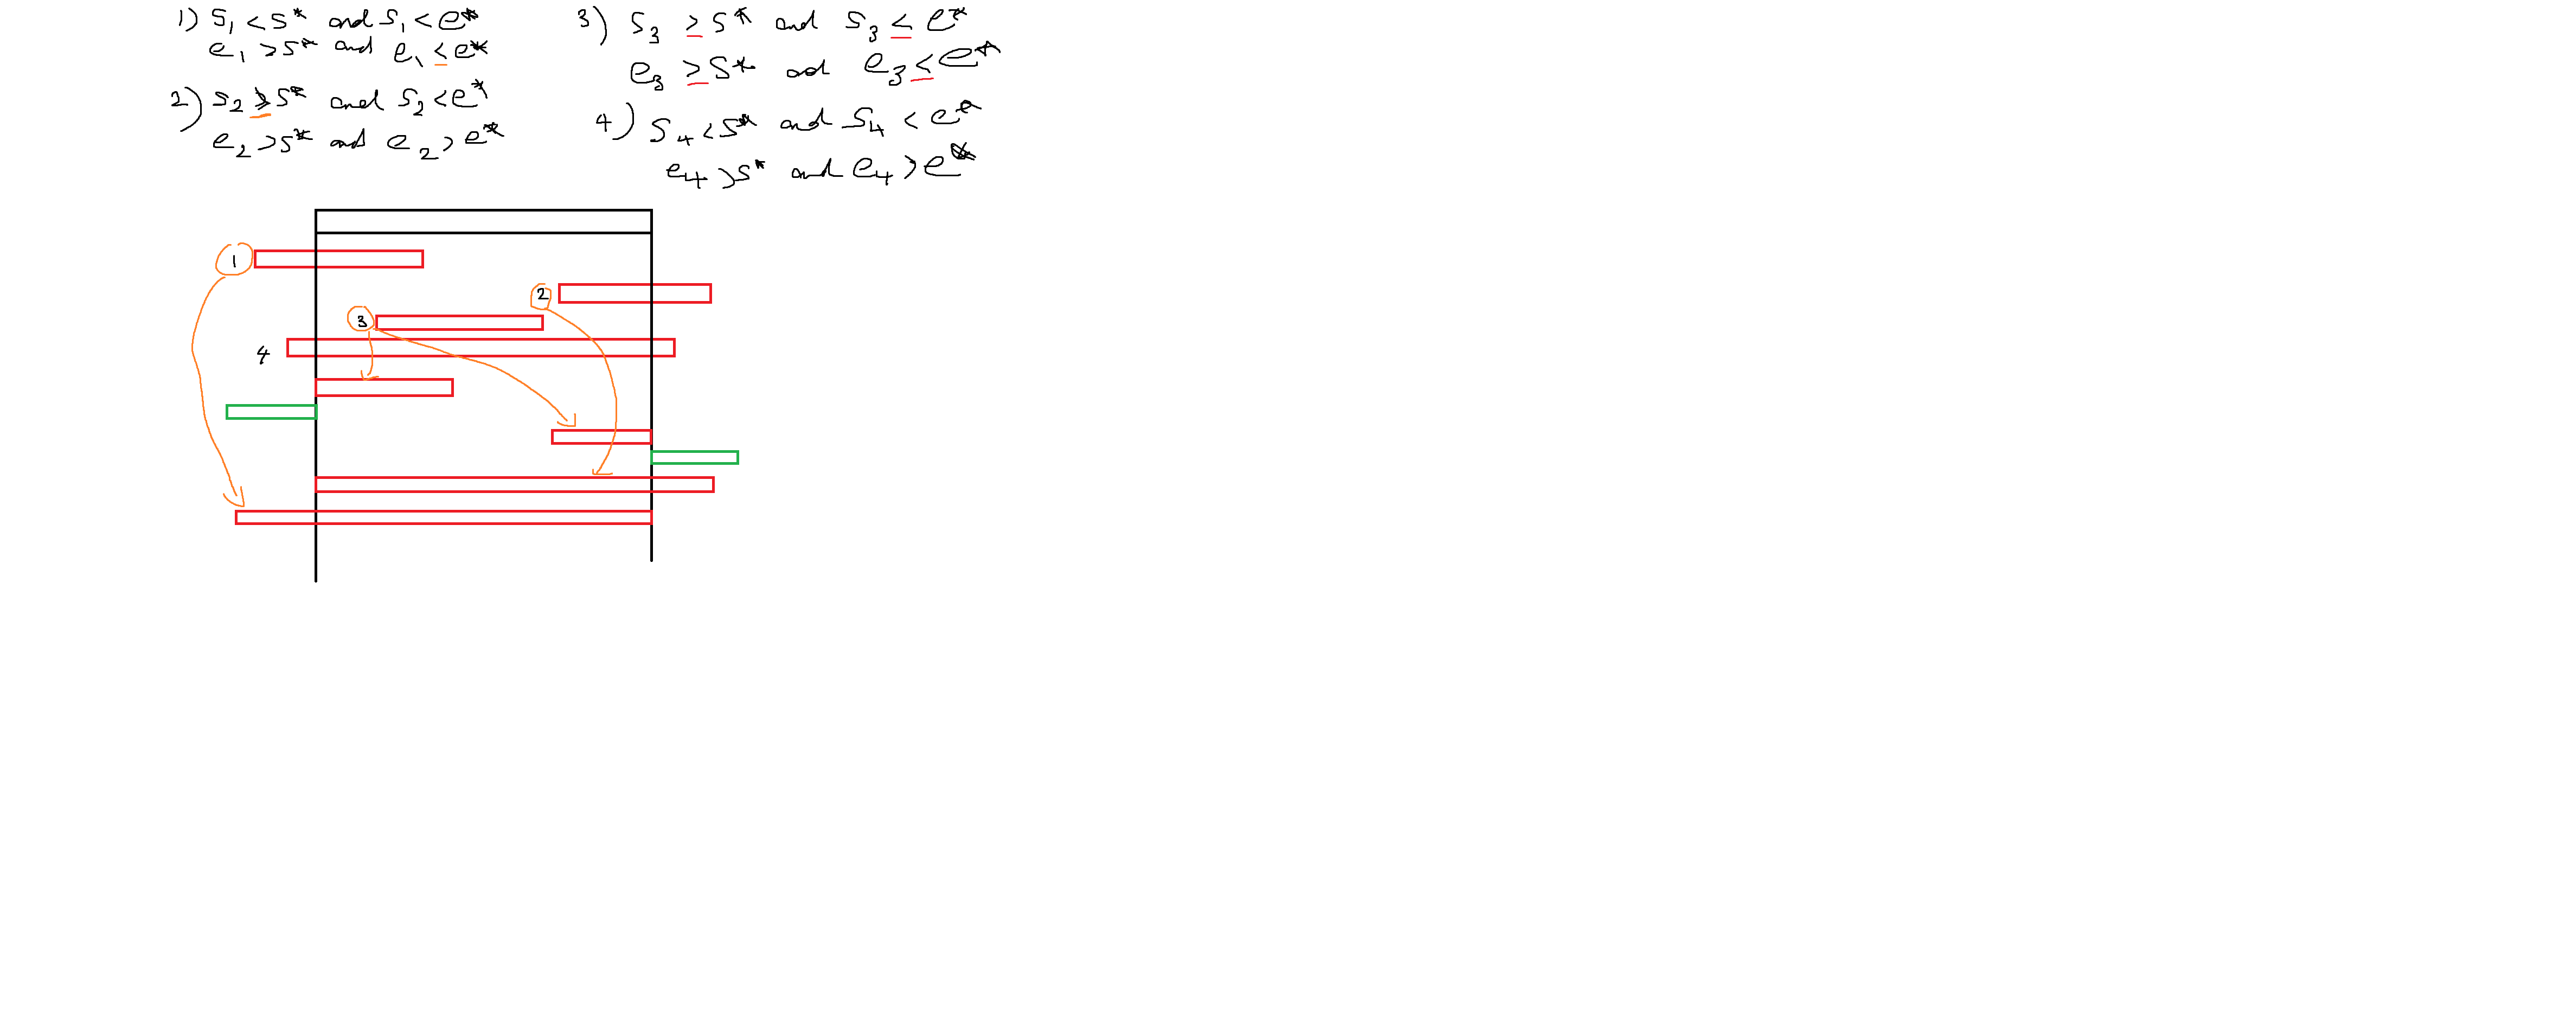 1) S₁ < S* and S₁ < e*
e₁ > S* and e₁ ≤ e*
2) S₂ ≥ S* and S₂ < e*
e₂ > S* and e₂ > e*
3) S₃ ≥ S* and S₃ ≤ e*
e₃ ≥ S* and e₃ ≤ e*
4) S₄ < S* and S₄ < e*
e₄ > S* and e₄ > e*
1
2
3
4